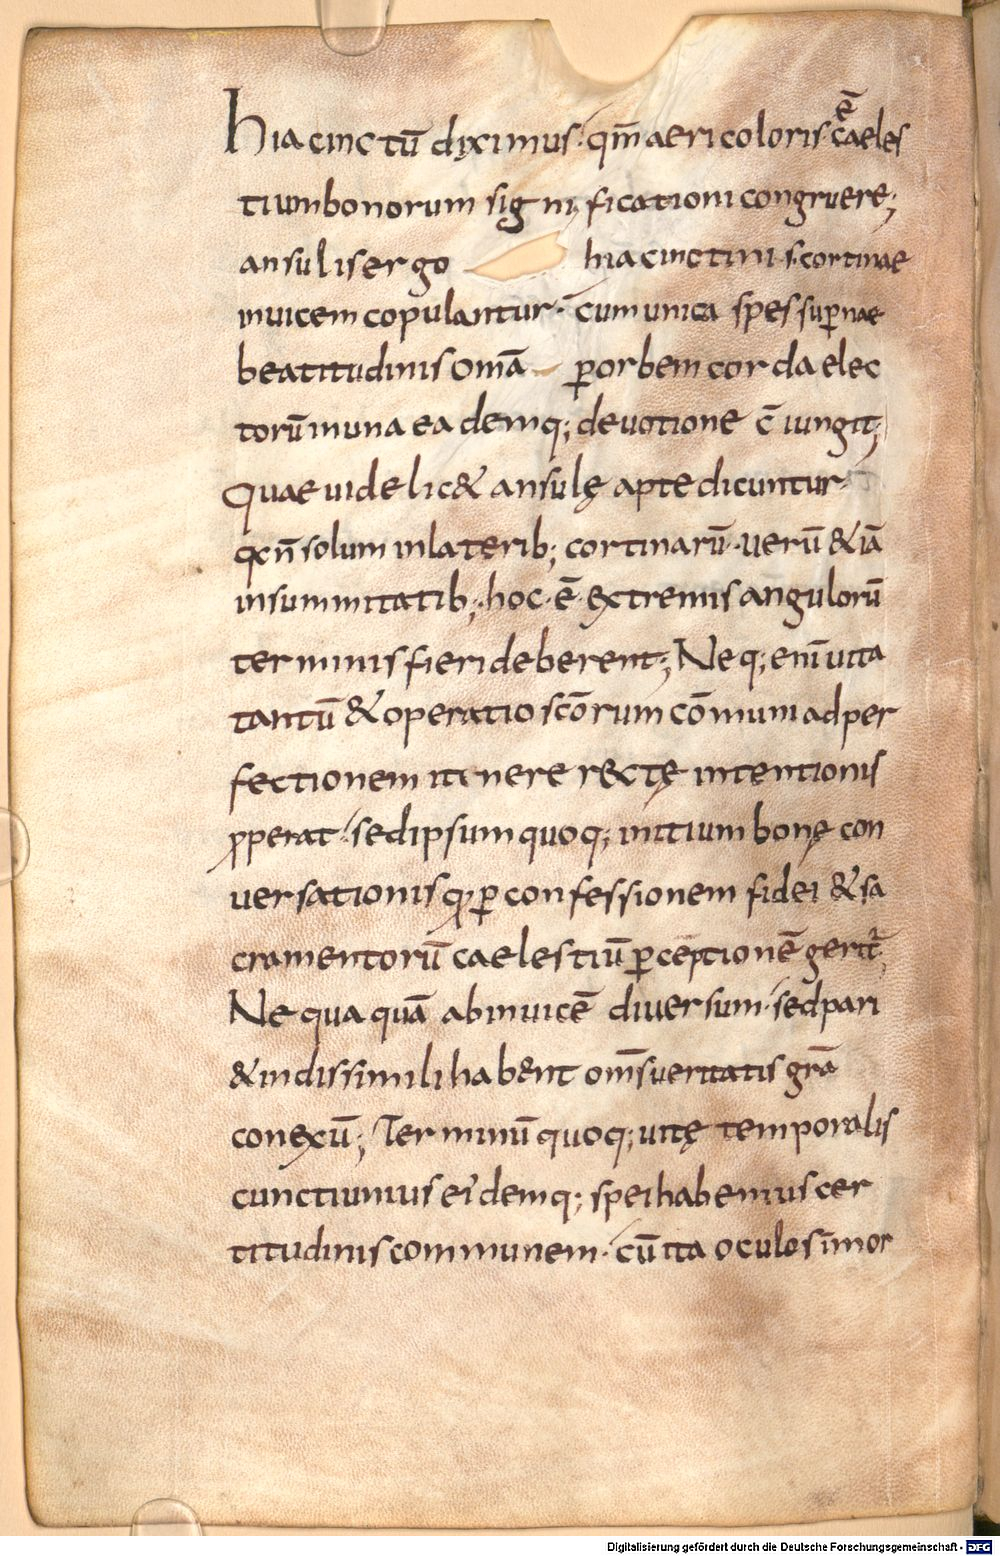 hiacinctū diximus· qm̄ aeri coloris ē caeles
tium bonorum significationi congruere;
ansulis ergo hiacinctinis· cortinae
inuicem copulantur· cum unica spes supernae
beatitudinis omā ꝑ orbem corda elec
torū in una eademq; deuotione c̄iungit;
Quae uidelic& ansulę apte dicuntur
qd n̄ solum in laterib; cortinarū· uerū &iā
in summitatib;· hoc· ē· extremis angulorū
terminis fieri deberent; Neq; enī uita
tantū & operatio scōrum cōmuni ad per
fectionem itinere rectę intentionis
ꝓperat· sed ipsum quoq; initium bonę con
uersationis q̨ ꝑ confessionem fidei & sa
cramentorū caelestiū ꝑceptionē gerit̄
Nequaquā ab inuicē diuersum· sed pari
& indissimili habent om̄s ueritatis grā
conexū; Terminū quoq; uitę temporalis
cuncti unius eidemq; spei habemus cer
titudinis communem· cū ita oculos in mor
Digitalisierung gefördert durch die Deutsche Forschungsgemeinschaft - DFG